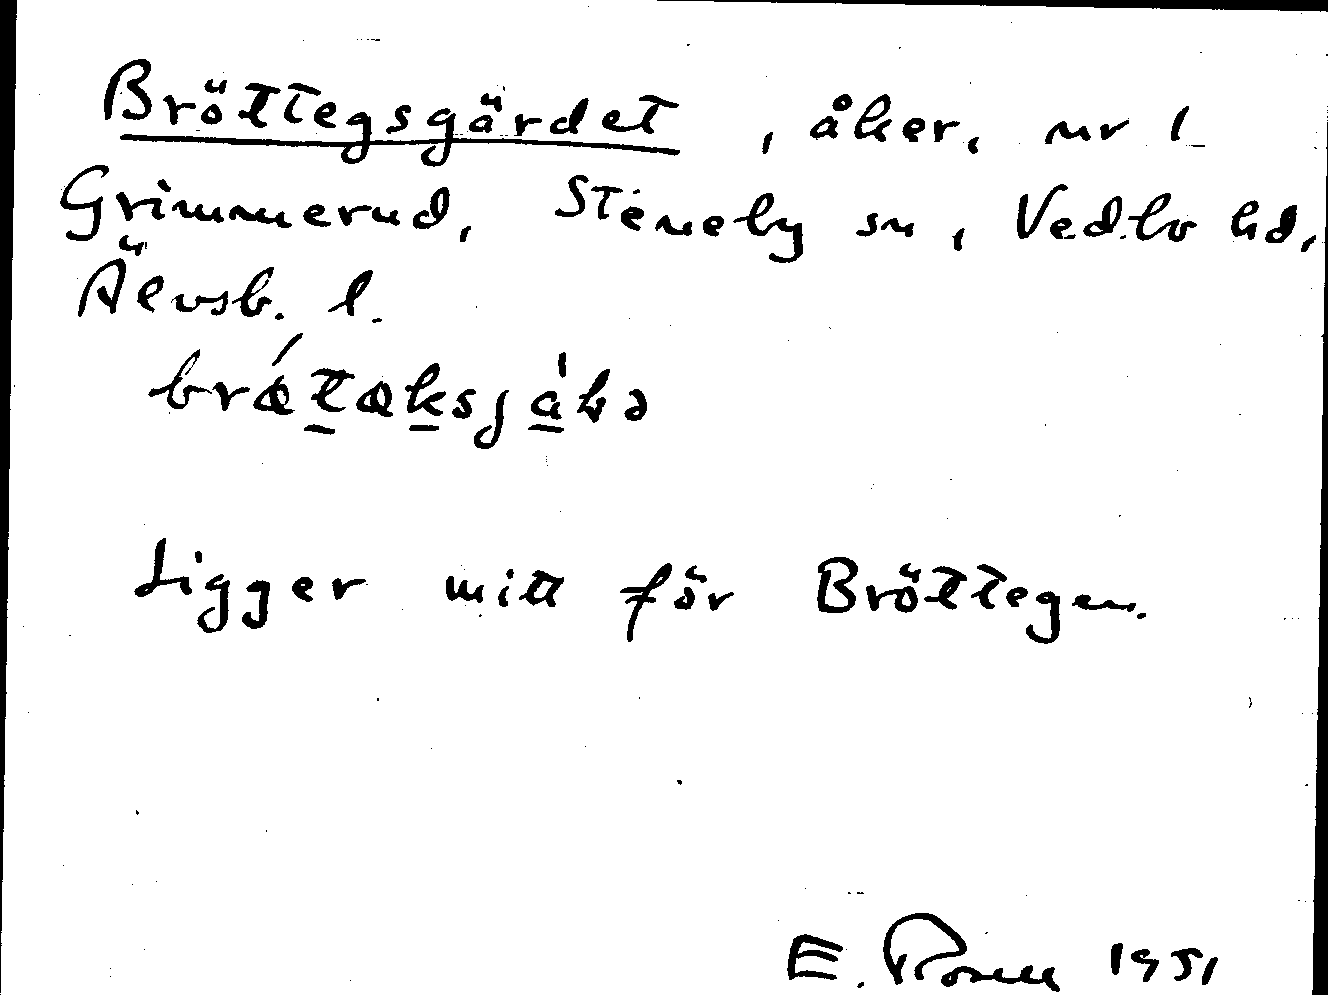 Bröttegsgärdet, åker, nr 1
Grimmerud, Steneby sn, Vedbo hd,
Älvsb. l.
Ligger mitt för Bröttegen.
E. Rosell 1951